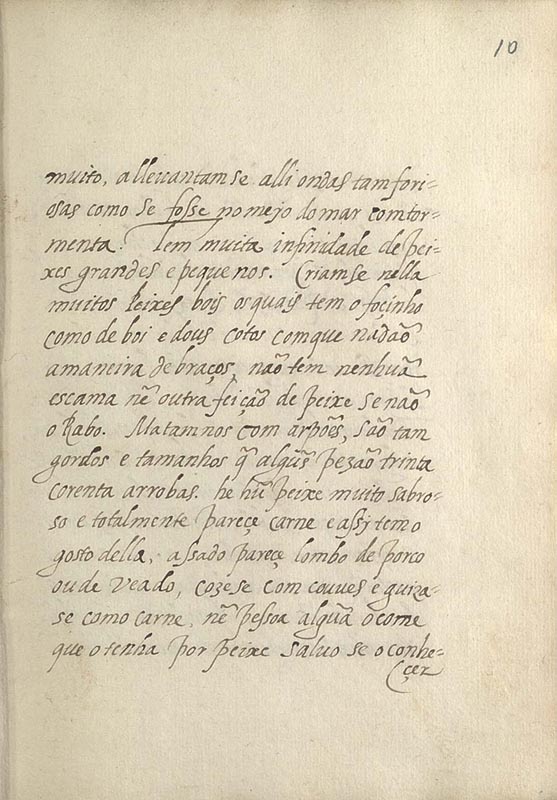 10
muito, allevantamse alli ondas tam fori=
osas como se fosse no mejo do mar com tor=
menta. Tem muita infinidade de pei=
xes grandes e pequenos. Criamse nella
muitos peixes bois os quais tem o focinho
como de boi e dous cotos com que nadaõ
a maneira de braços, naõ tem nenhuã
escama nẽ outra feiçaõ de peixe se naõ
o Rabo. Matamnos com arpoẽs, saõ tam
gordos e tamanhos q̃ algũs pezaõ trinta
corenta arrobas. he hũ peixe muito sabro=
so e totalmente pareçe carne e assy tem o
gosto della, assado pareçe lombo de porco
ou de veado, cozese com couves e guiza=
se como carne, nẽ pessoa alguã o come
que o tenha por peixe salvo se o conhe=
çer